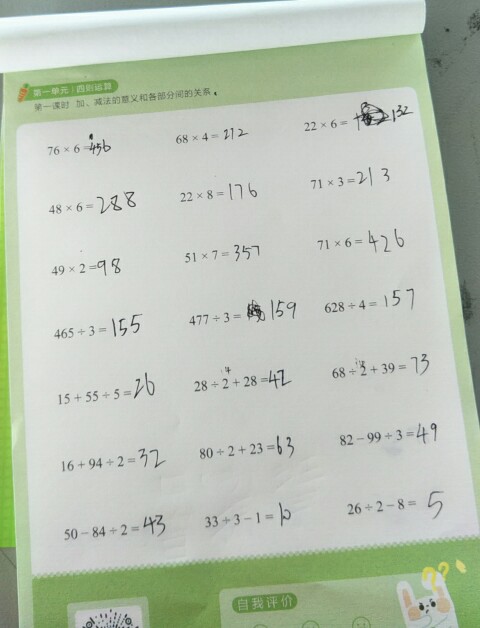 第一单元 | 四则运算
第一课时 加、减法的意义和各部分间的关系
76 × 6 = 456 68 × 4 = 212 22 × 6 = 132
48 × 6 = 288 22 × 8 = 176 71 × 3 = 213
49 × 2 = 98 51 × 7 = 357 71 × 6 = 426
465 ÷ 3 = 155 477 ÷ 3 = 159 628 ÷ 4 = 157
15 + 55 ÷ 5 = 26 28 ÷ 2 + 28 = 42 68 ÷ 2 + 39 = 73
16 + 94 ÷ 2 = 32 80 ÷ 2 + 23 = 63 82 − 99 ÷ 3 = 49
50 − 84 ÷ 2 = 43 33 ÷ 3 − 1 = 10 26 ÷ 2 − 8 = 5
自我评价